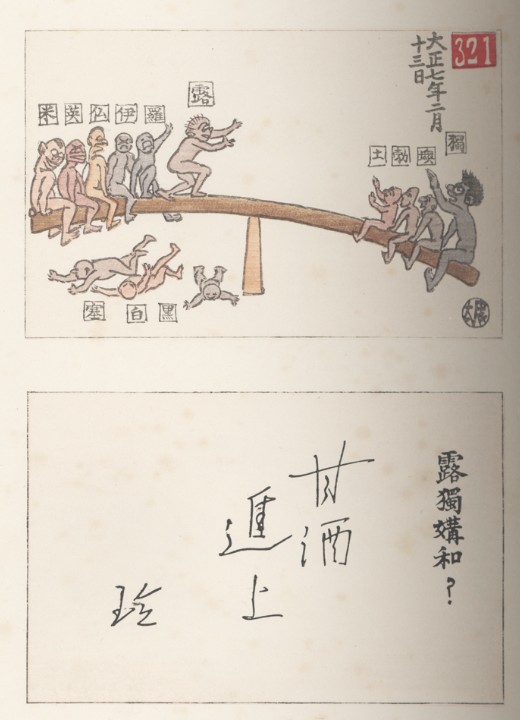 321
大正七年二月
十三日
米 英 仏 伊 羅
露
土 勃 墺 獨
塞 白 黒
露獨媾和?
甘酒
進上